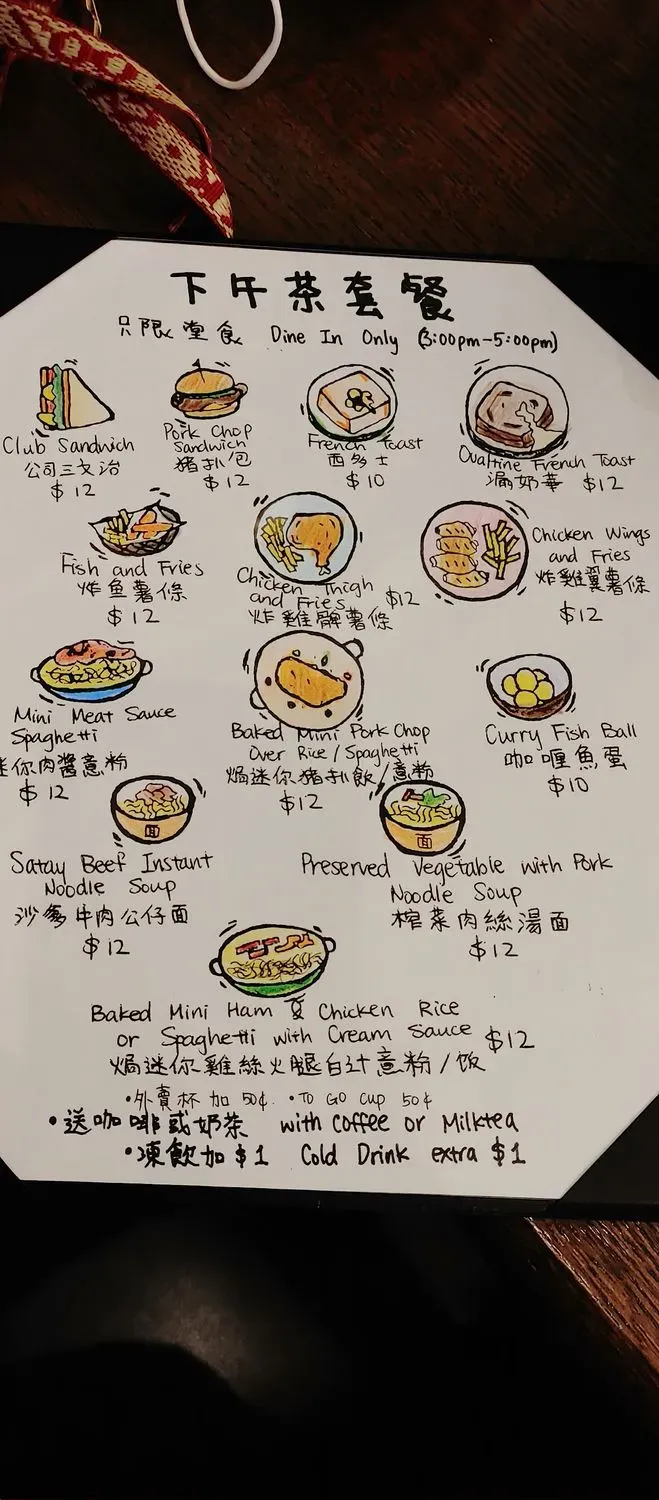 下午茶套餐
只限堂食 Dine In Only (3:00pm-5:00pm)
Club Sandwich
公司三文治
$12
Pork Chop
Sandwich
猪扒包
$12
French Toast
西多士
$10
Ovaltine French Toast
漏奶華 $12
Fish and Fries
炸鱼薯條
$12
Chicken Thigh
and Fries $12
炸雞髀薯條
Chicken Wings
and Fries
炸雞翼薯條
$12
Mini Meat Sauce
Spaghetti
迷你肉醬意粉
$12
Baked Mini Pork Chop
Over Rice / Spaghetti
焗迷你猪扒飯/意粉
$12
Curry Fish Ball
咖喱魚蛋
$10
面
Satay Beef Instant
Noodle Soup
沙爹牛肉公仔面
$12
面
Preserved Vegetable with Pork
Noodle Soup
榨菜肉絲湯面
$12
Baked Mini Ham & Chicken Rice
or Spaghetti with Cream Sauce $12
焗迷你雞絲火腿白汁意粉/饭
•外賣杯加50¢ •To Go Cup 50¢
•送咖啡或奶茶 with Coffee or Milktea
•凍飲加$1 Cold Drink extra $1